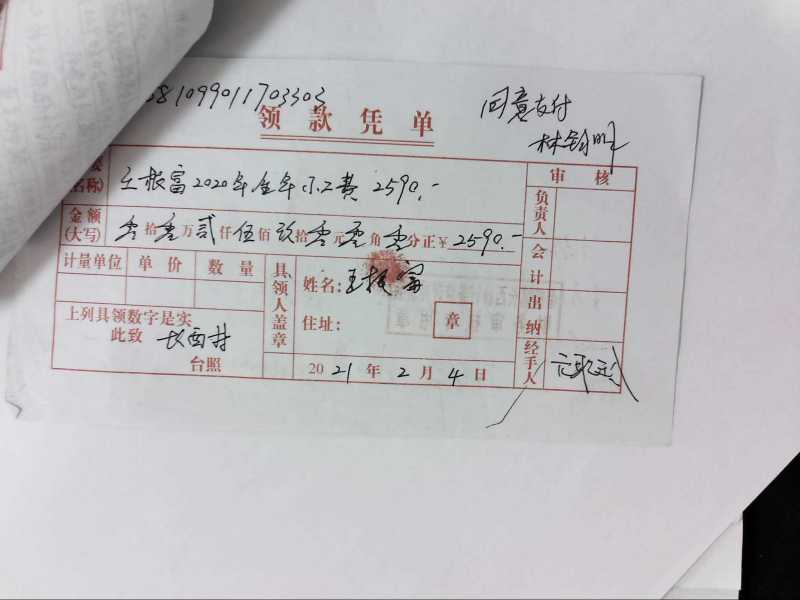 81099011703303
同意支付
领款凭单
审核
王根富2020年全年小工费 2590.-
负责人
金额(大写) 零拾零万贰仟伍佰玖拾零元零角零分正¥2590.-
会计
计量单位 单价 数量
具领人盖章
姓名:王根富
住址:
章
出纳
上列具领数字是实
此致 长西村
台照
2021年2月4日
经手人